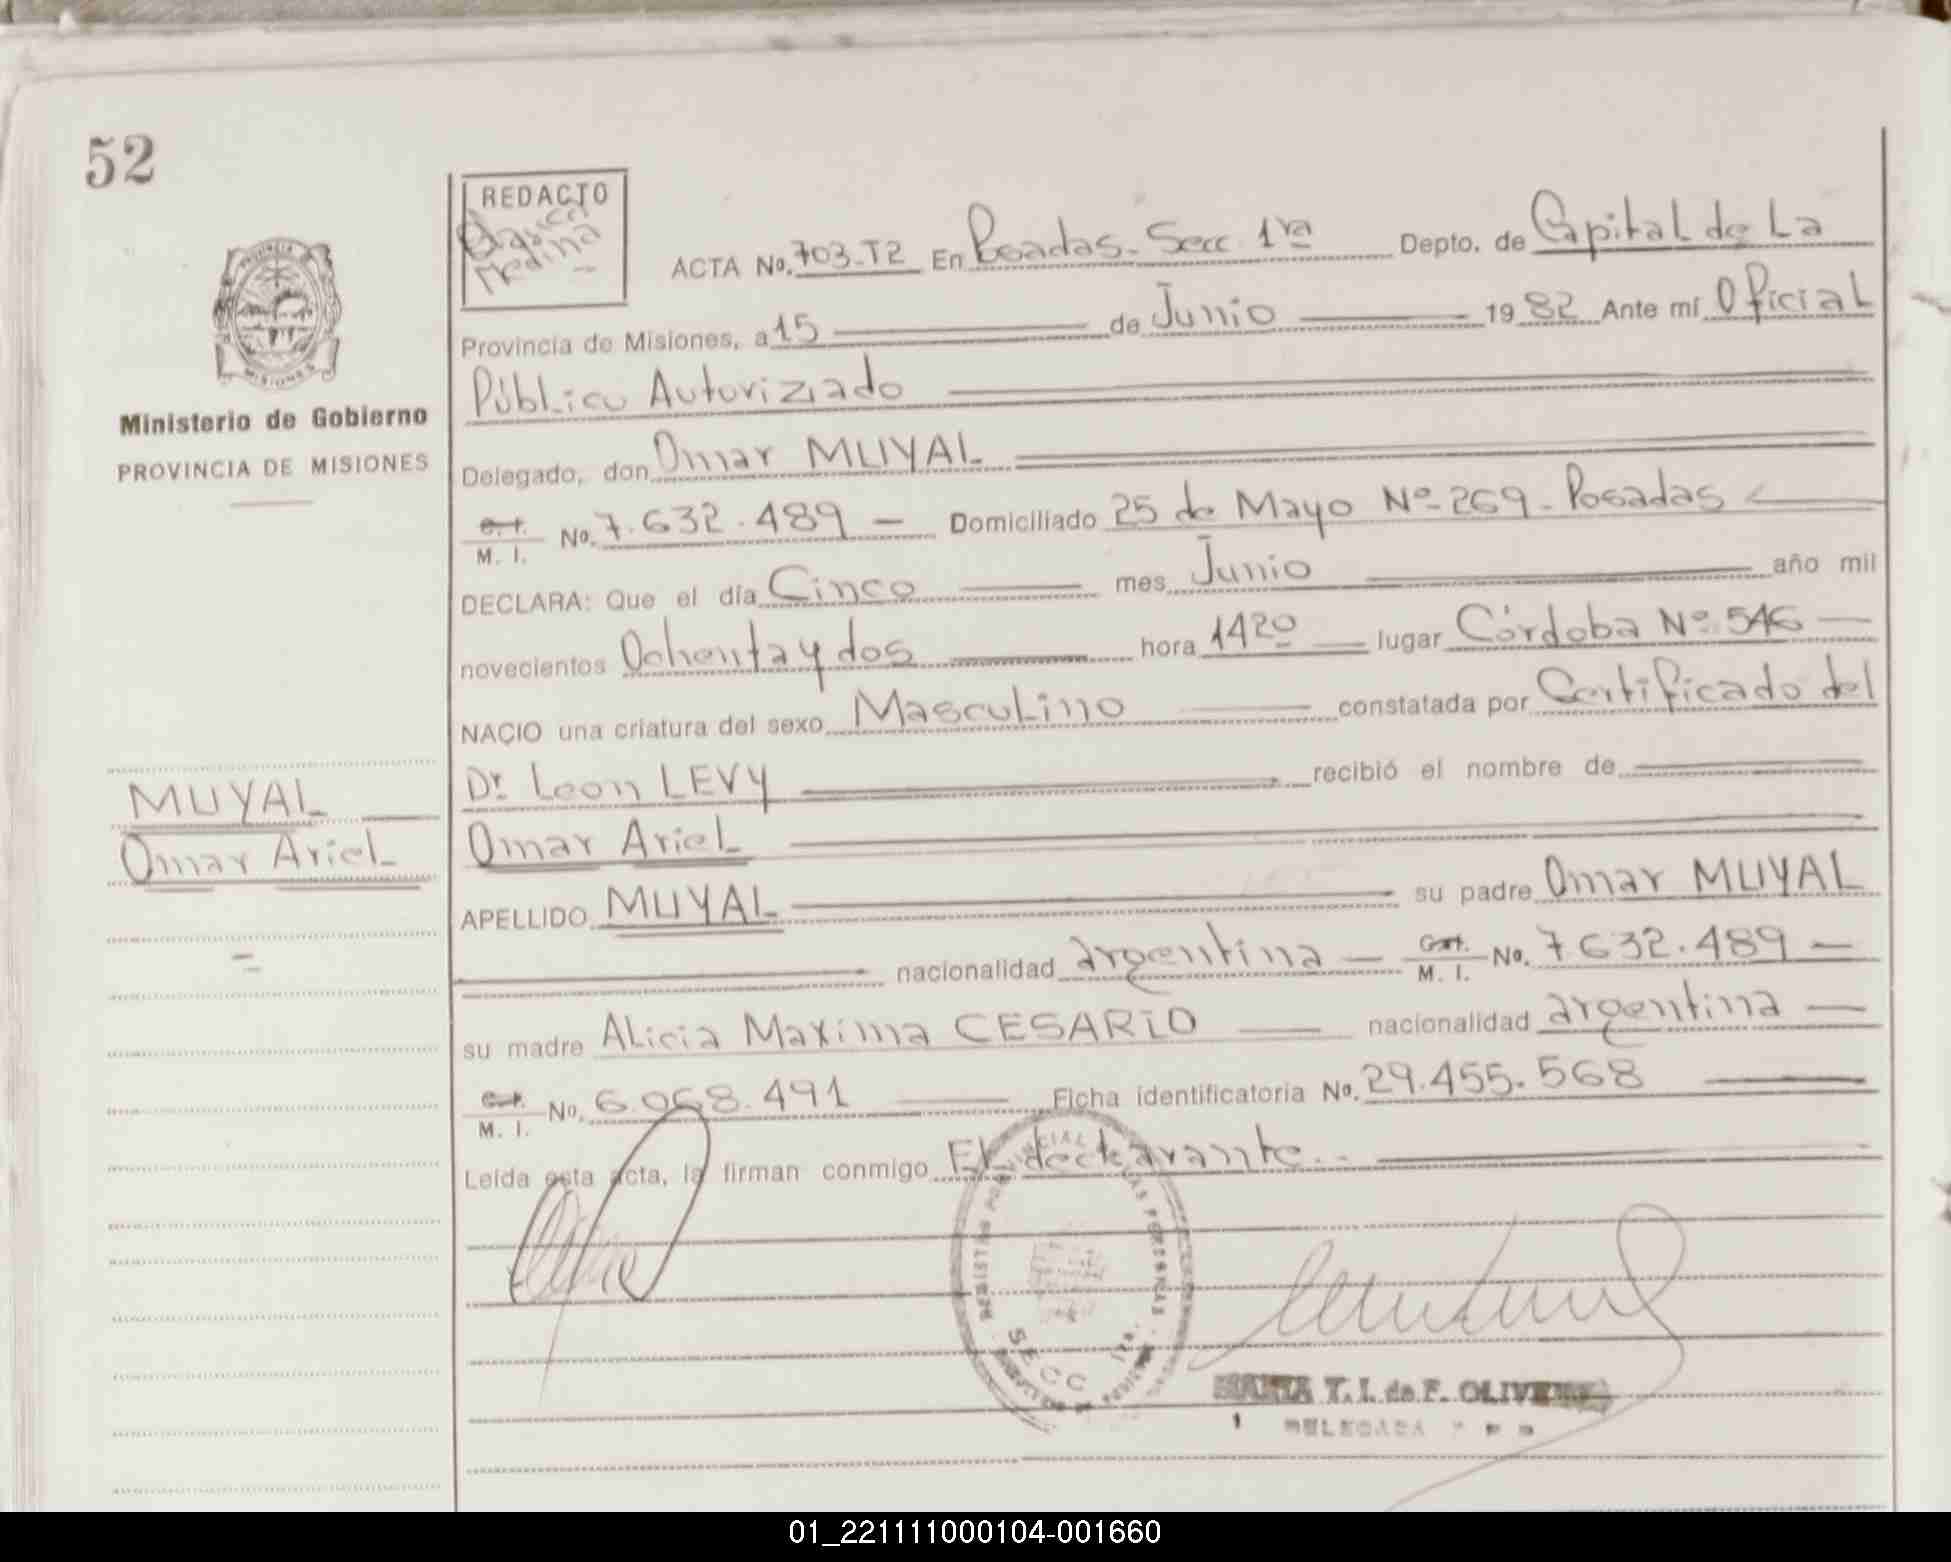 52
REDACTO
Medina
ACTA No. 703-T2 En Posadas-Secc 1ra Depto. de Capital de La
Provincia de Misiones, a 15 de Junio 1982 Ante mí Oficial
Público Autoriziado
Delegado, don Omar MUYAL
C. I. M. I. No. 7.632.489 — Domiciliado 25 de Mayo Nº 269 - Posadas
DECLARA: Que el día Cinco mes Junio año mil
novecientos Ochenta y dos hora 1420 lugar Córdoba Nº 546
NACIO una criatura del sexo Masculino constatada por Certificado del
Dr. Leon LEVY recibió el nombre de
Omar Ariel
APELLIDO MUYAL su padre Omar MUYAL
nacionalidad argentina — Cart. M. I. No. 7632.489 —
su madre Alicia Maxima CESARIO nacionalidad argentina —
C. I. M. I. No. 6.068.491 Ficha identificatoria No. 29.455.568
Leída esta acta, la firman conmigo El declarante..
PROVINCIA DE MISIONES
Ministerio de Gobierno
PROVINCIA DE MISIONES
MUYAL
Omar Ariel
REGISTRO PROVINCIAL DE LAS PERSONAS
SECC 1ra.
T. I. de F. OLIVE
DELEGADA
01_221111000104-001660